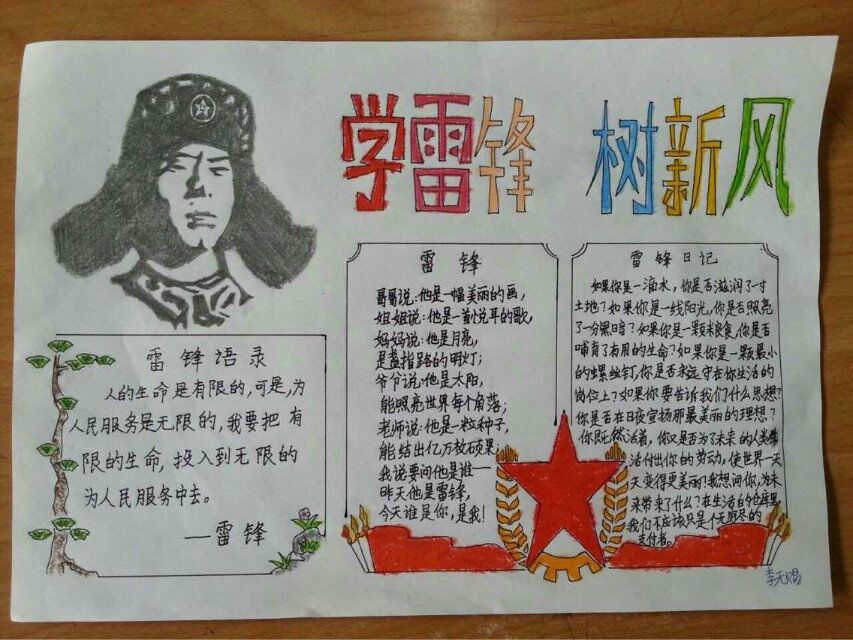 学雷锋 树新风
雷锋语录
人的生命是有限的,可是,为
人民服务是无限的,我要把有
限的生命,投入到无限的
为人民服务中去。
—雷锋
雷锋
哥哥说:他是一幅美丽的画,
姐姐说:他是一首悦耳的歌,
妈妈说:他是月亮,
是盏指路的明灯;
爷爷说:他是太阳,
能照亮世界每个角落;
老师说:他是一粒种子,
能结出亿万枚硕果;
我说要问他是谁—
昨天他是雷锋,
今天谁是你,是我!
雷锋日记
如果你是一滴水,你是否滋润了一寸
土地?如果你是一线阳光,你是否照亮
了一分黑暗?如果你是一颗粮食,你是否
哺育了有用的生命?如果你是一颗最小
的螺丝钉,你是否永远守在你生活的
岗位上?如果你要告诉我们什么思想?
你是否在日夜宣扬那最美丽的理想?
你既然活着,你又是否为了未来的人类
活付出你的劳动,使世界一天
天变得更美丽?我想问你,为未
来带来了什么?在生活的仓库里,
我们不应该只是个无穷尽的
支付者。
李天赐